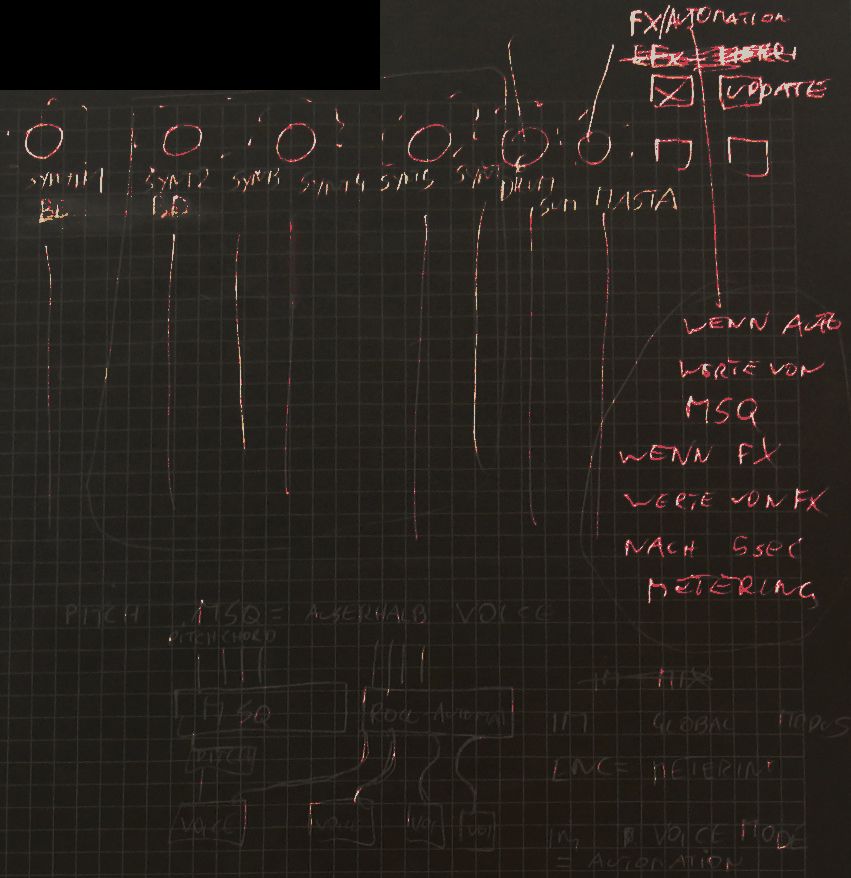 FX/AUTOMATION
UPDATE
SYNTH1 SYNT2 SYNT3 SYNT4 SYNT5 SYNT DRUM
BD SUM MASTA
WENN AUTO
WERTE VON
MSQ
WENN FX
WERTE VON FX
NACH 5SEC
METERING
PITCH MSQ = AUSERHALB VOICE
PITCH CHORD
MSQ
PITCH
VOICE VOICE VOI VOI
IM GLOBAL MODUS
ENC = METERING
IM VOICE MODE
= AUTOMATION